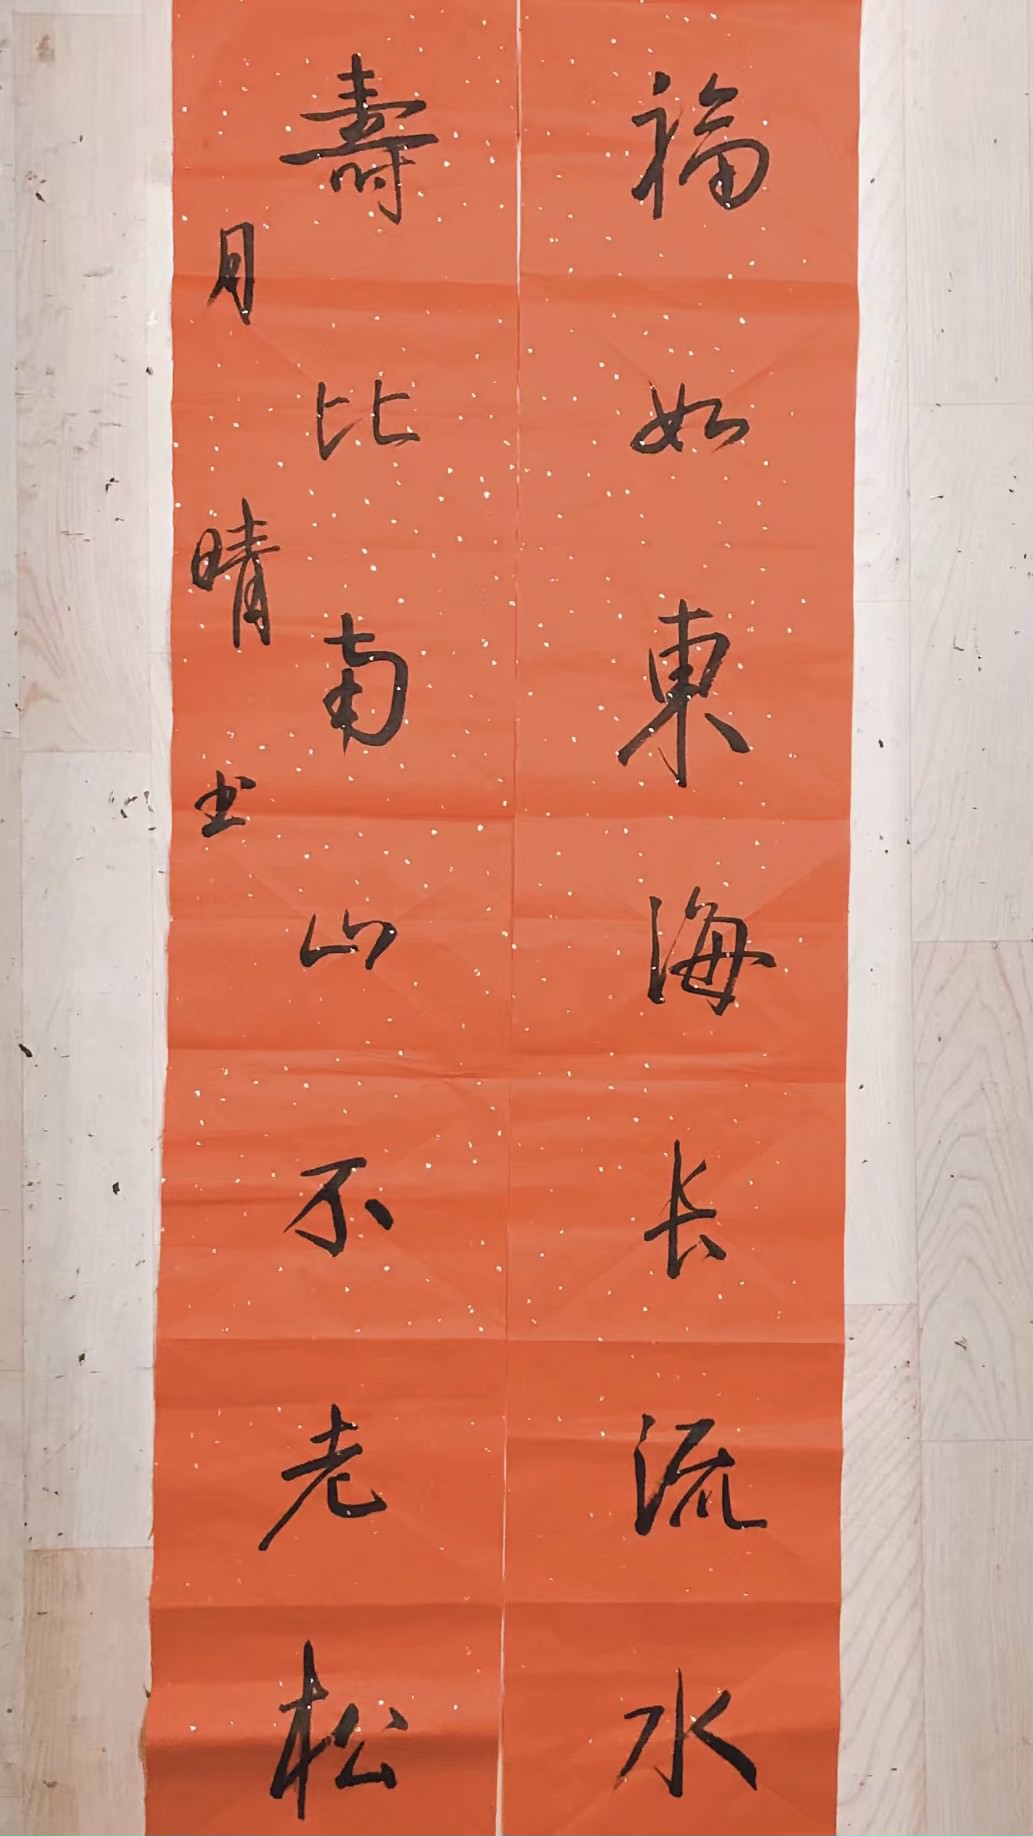 福如東海长流水
壽比南山不老松
月晴书